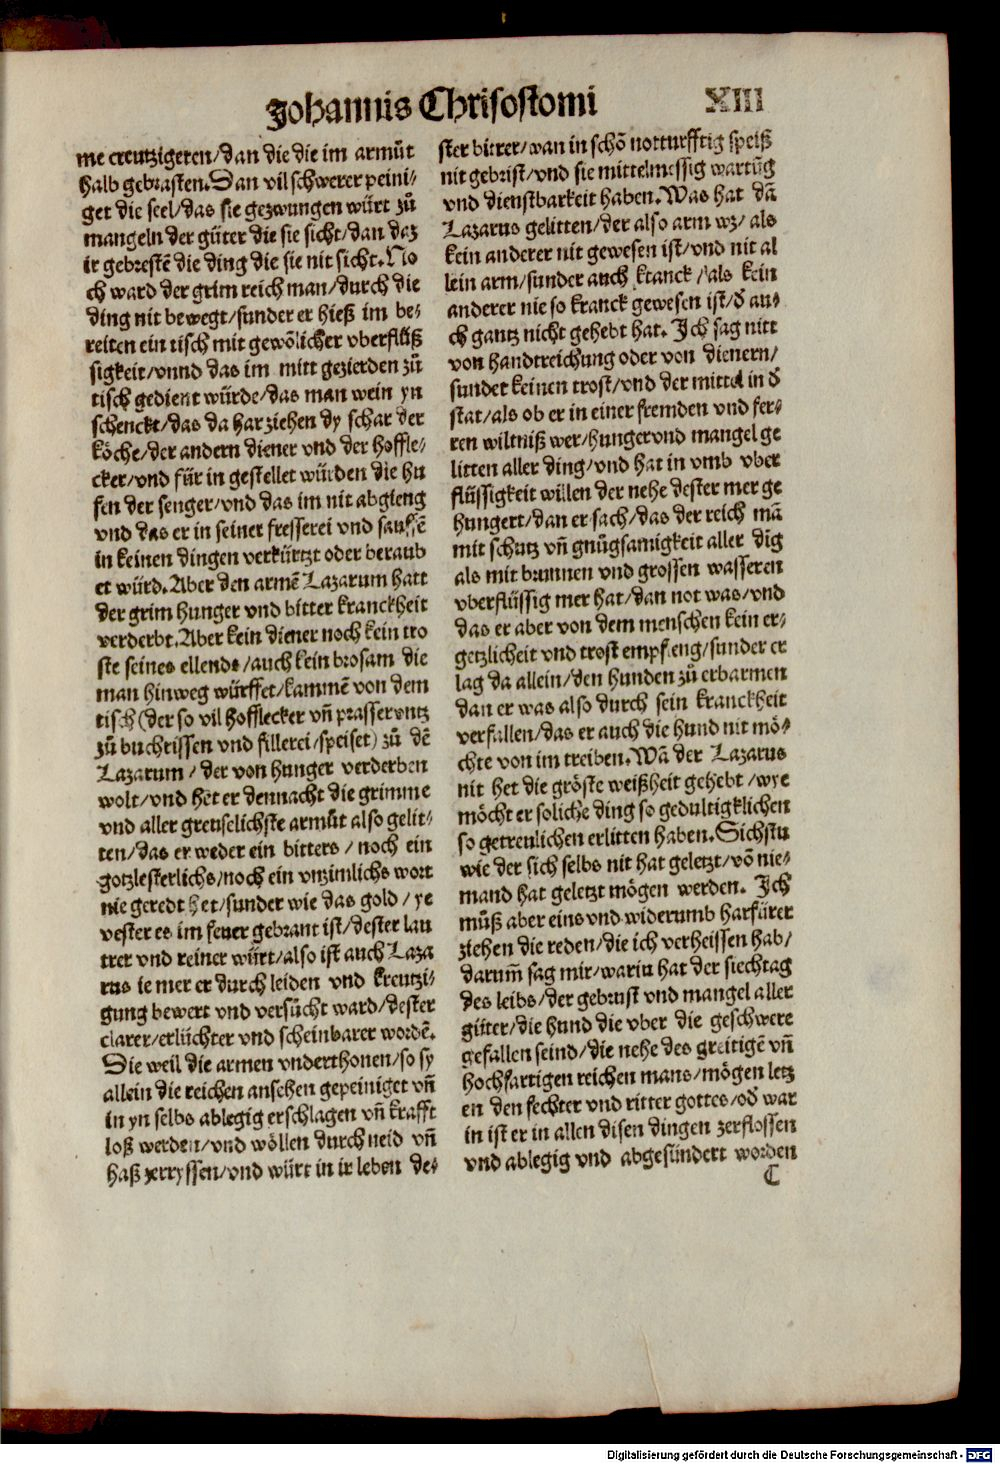 Johannis Chrisostomi
XIII
me creutzigeten/dan die die im armůt
halb gebrasten. Dan vil schwerer peini⸗
get die seel/das sie gezwungen würt zů
mangeln der güter die sie sicht/dan daz
ir gebrestē die ding die sie nit sicht. No
ch ward der grim reich man/durch die
ding nit bewegt/sunder er hieß im be⸗
reiten ein tisch mit gewőlicher vberflüß
sigkeit/vnnd das im mitt gezierden zů
tisch gedient würde/das man wein yn
schenckt/das da har ziehen dy schar der
köche/der andern diener vnd der hoffle⸗
cker/vnd für in gestellet würden die hu
fen der senger/vnd das im nit abgieng
vnd das er in seiner fresserei vnd sauffē
in keinen dingen verkürtzt oder beraub
et würd. Aber den armē Lazarum hatt
der grim hunger vnd bitter kranckheit
verderbt. Aber kein diener noch kein tro
ste seines ellends/auch kein brosam die
man hinweg würffet/kammē von dem
tisch (der so vil hofflecker vñ prasser vntz
zů buchrissen vnd fillerei/speiset) zů dē
Lazarum/der von hunger verderben
wolt/vnd het er dennacht die grimme
vnd aller greuselichste armůt also gelit⸗
ten/das er weder ein bitters/noch ein
gotzlesterlichs/noch ein vnzimlichs wort
nie geredt het/sunder wie das gold/ye
vester es im feuer gebrant ist/dester lau
trer vnd reiner würt/also ist auch Laza
rus ie mer er durch leiden vnd kreutzi⸗
gung bewert vnd versůcht ward/dester
clarer/erlüchter vnd scheinbarer wordē.
Die weil die armen vnderthonen/so sy
allein die reichen ansehen gepeiniget vñ
in yn selbs ablegig erschlagen vñ krafft
loß werden/vnd wöllen durch neid vñ
haß zerryssen/vnd würt in ir leben de⸗
ster bitrer/wan in schő notturfftig speiß
nit gebrist/vnd sie mittelmessig wartūg
vnd dienstbarkeit haben. Was hat dā
Lazarus gelitten/der also arm wz/als
kein anderer nit gewesen ist/vnd nit al
lein arm/sunder auch kranck/als kein
anderer nie so kranck gewesen ist/d̄ au⸗
ch gantz nicht gehebt hat. Ich sag nitt
von handtreichung oder von dienern/
sunder keinen trost/vnd der mittel in d̄
stat/als ob er in einer fremden vnd fer⸗
ren wiltniß wer/hunger vnd mangel ge
litten aller ding/vnd hat in vmb vber
flüssigkeit willen der nehe dester mer ge
hungert/dan er sach/das der reich mā
mit schutz vñ gnůgsamigkeit aller dīg
als mit brunnen vnd grossen wasseren
vberflüssig mer hat/dan not was/vnd
das er aber von dem menschen kein er⸗
getzlicheit vnd trost empfeng/sunder er
lag da allein/den hunden zů erbarmen
dan er was also durch sein kranckheit
verfallen/das er auch die hund nit mö⸗
chte von im treiben. Wā der Lazarus
nit het die gröste weißheit gehebt/wye
möcht er soliche ding so gedultigklichen
so getreulichen erlitten haben. Sichstu
wie der sich selbs nit hat geletzt/vō nie⸗
mand hat geletzt mögen werden. Ich
můß aber eins vnd widerumb harfürer
ziehen die reden/die ich verheissen hab/
darum̄ sag mir/wariu hat der siechtag
des leibs/der gebrust vnd mangel aller
güter/die hund die vber die geschwere
gefallen seind/die nehe des greitigē vñ
hochfartigen reichen mans/mögen letz
en den fechter vnd ritter gottes/od̄ war
in ist er in allen disen dingen zerflossen
vnd ablegig vnd abgesündert worden
C
Digitalisierung gefördert durch die Deutsche Forschungsgemeinschaft - DFG